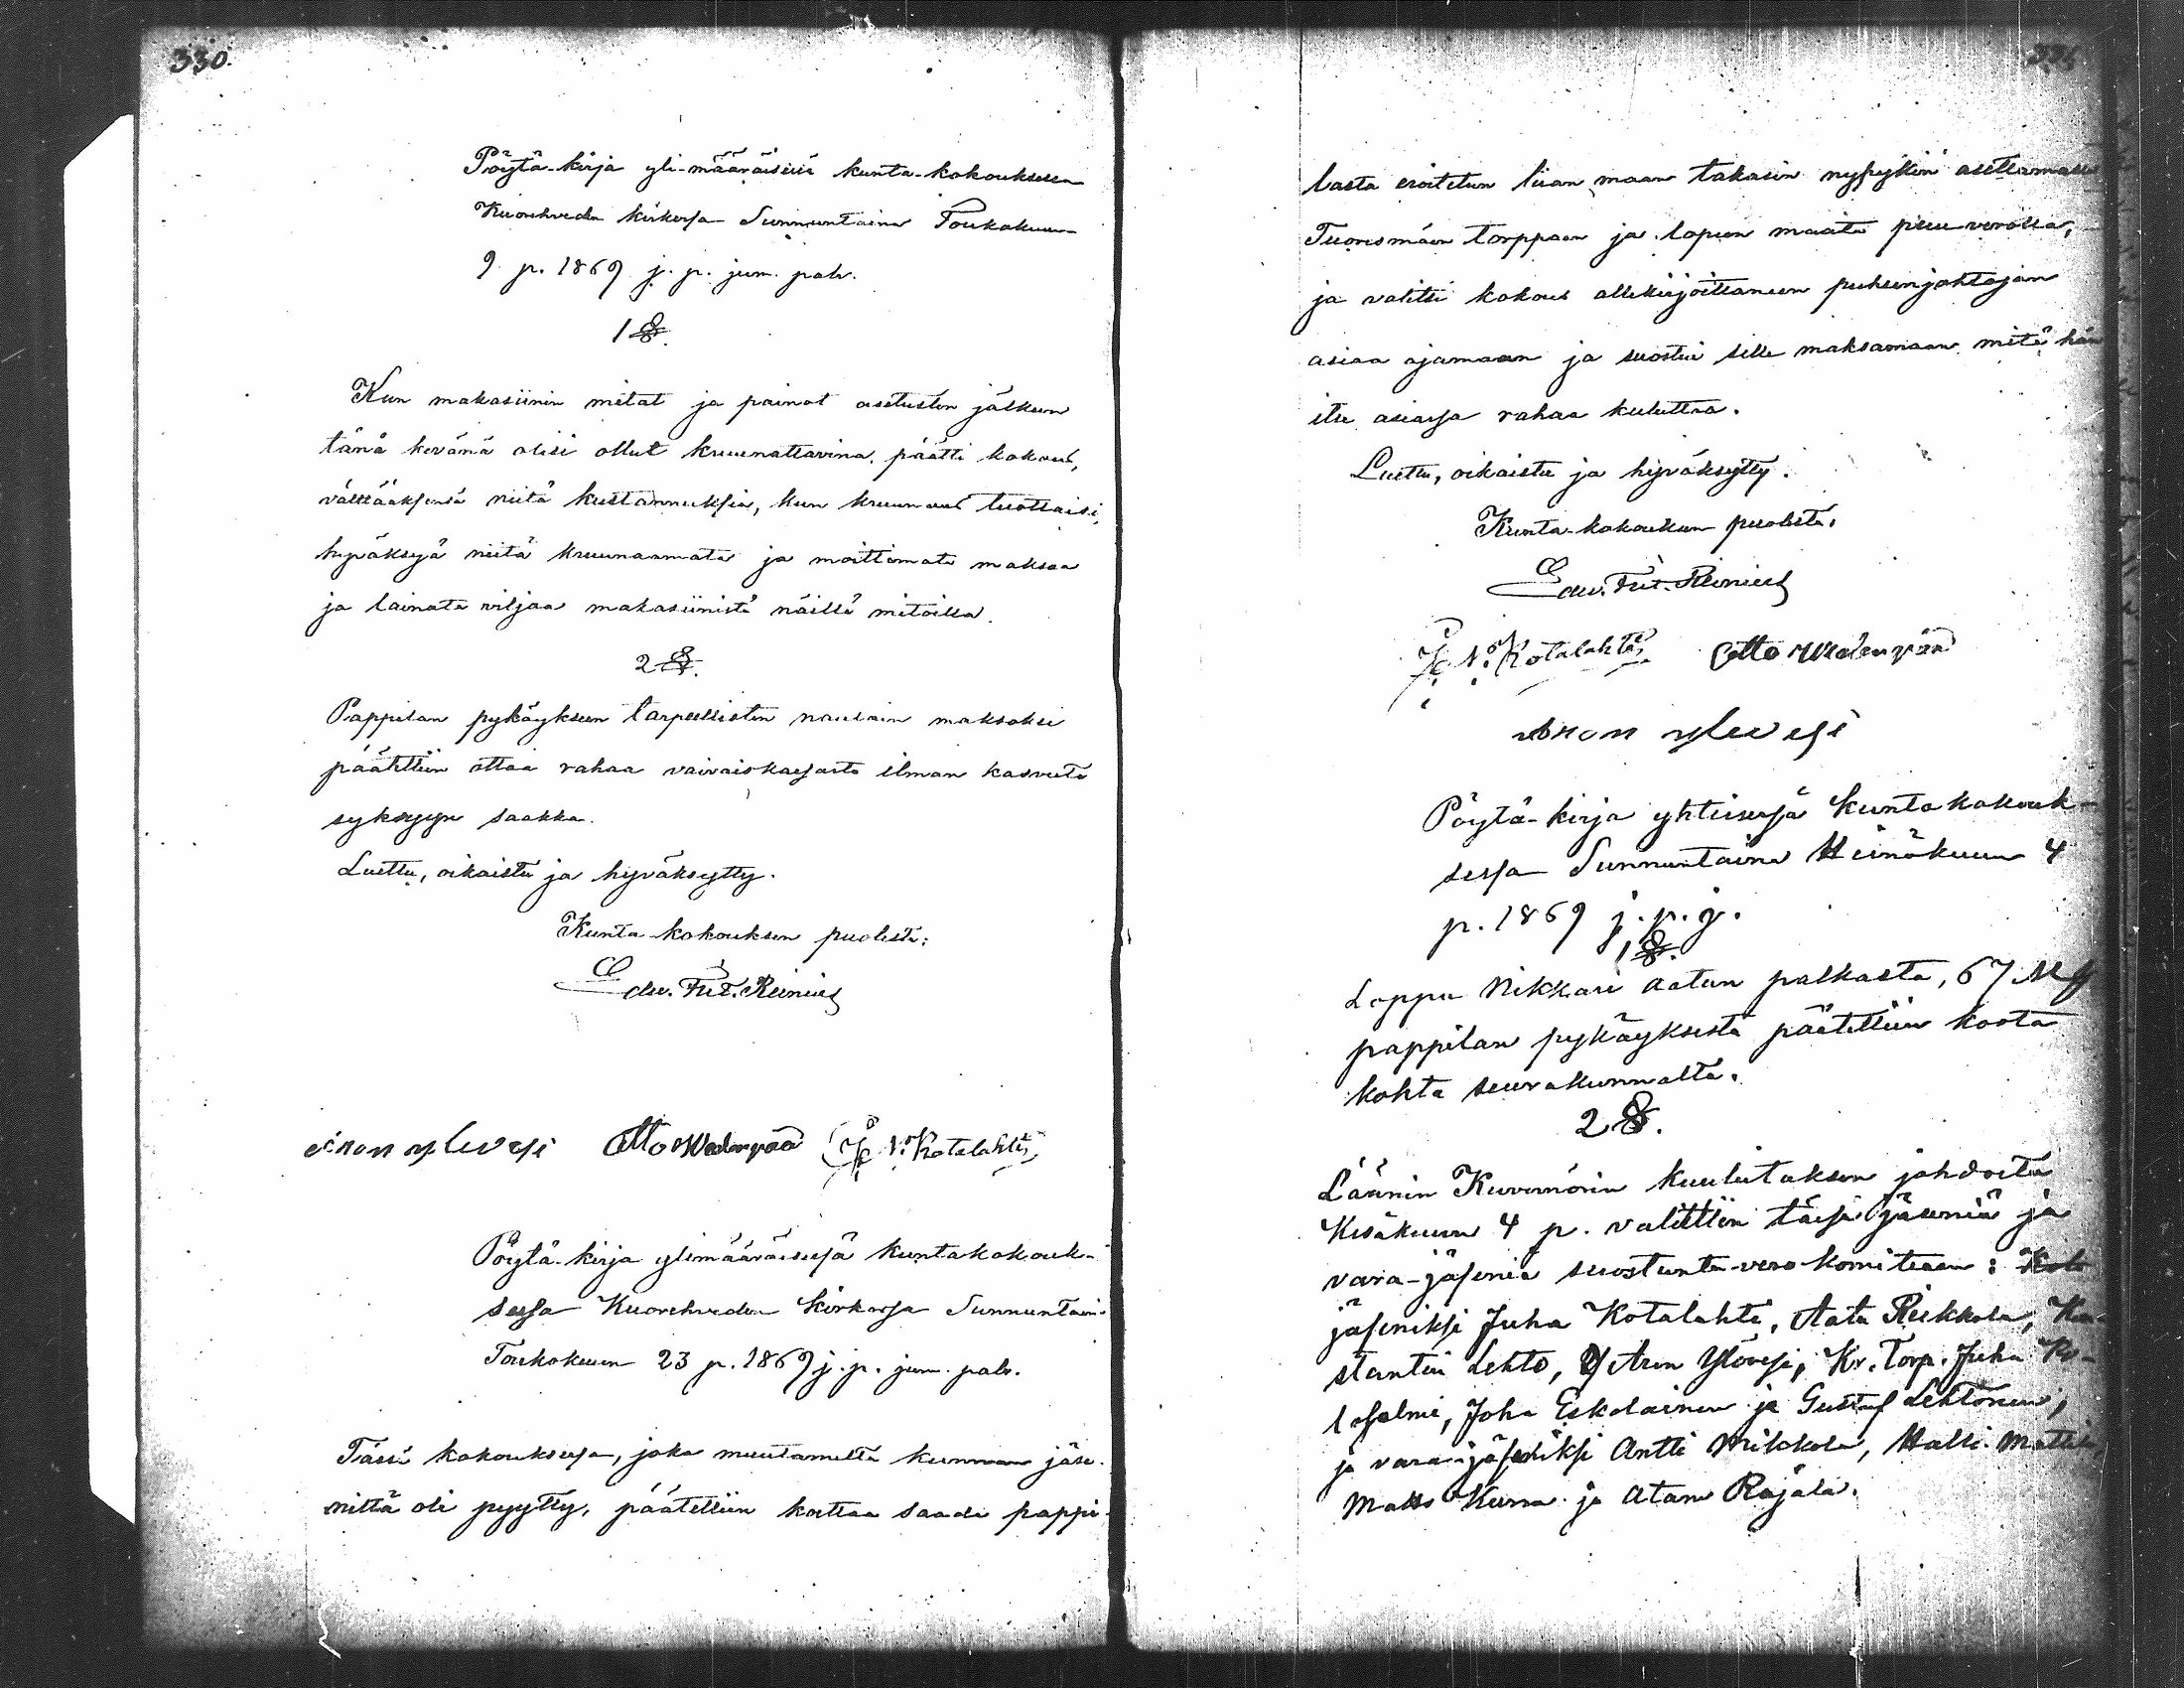 330.
Pöytä-kirja yli-määräisessä kunta-kokouksessa
Kuorehveden kirkossa Sunnuntaina Toukokuun
9 p. 1869 j. p. jum. palv.
1 §.
Kun makasiinin mitat ja painot asetusten jälkeen
tänä kevänä olisi ollut kruunattavina, päätti kokous,
välttääksensä niitä kustannuksia, kun kruunaus tuottaisi,
hyväksyä niitä kruunaamata ja moittimata maksaa
ja lainata viljaa makasiinista näillä mitoilla.
2 §.
Pappilan pykäykseen tarpeellisten naulain maksoksi
päätettiin ottaa rahaa vaivaiskassasta ilman kasvuta
syksyyn saakka.
Luettu, oikaistu ja hyväksytty.
Kunta-kokouksen puolesta:
Edv. Fr. Reinius
Aron ylevesi Otto Wedenpää J. N. Kotalahti
Pöytä-kirja ylimääräisessä kuntakokouk-
sessa Kuorehveden kirkossa Sunnuntaina
Toukokuun 23 p. 1869 j. p. jum. palv.
Tässä kokouksessa, joka muutamilta kunnan jäse-
niltä oli pyytty, päätettiin koettaa saada pappi-
lasta eroitetun liian maan takasin nykyjkin asettamalla
Tuoresmäen torppaan ja lapeen maata puu verolla,
ja valitti kokous allekirjoittaneen puheenjohtajan
asiaa ajamaan ja suostui sille maksamaan mitä hän
itse asiassa rahaa kuluttaa.
Luettu, oikaistu ja hyväksytty.
Kunta-kokouksen puolesta:
Edv. Fr. Reinius
J. N. Kotalahti Otto Wedenpää
Aron ylevesi
Pöytä-kirja yhteisessä kuntakokouk-
sessa Sunnuntaina Heinäkuun 4
p. 1869 j. p. j.
1 §.
Loppu Nikkari Aatun palkasta, 67 Mk
pappilan pykäyksestä päätettiin koota
kohta seurakunnalta.
2 §.
Läänin Kuvernörin kuulutuksen johdosta
Kesäkuun 4 p. valittiin täysi jäseniä ja
vara-jäseniä suostunta-vero komiteaan:
jäseniksi Juha Kotalahti, Aatu Riekkola, Kon-
stantin Lehto, Aron Ylövesi, Kr. Torp. Juha Ko-
losalmi, Joha Eskolainen ja Gustaf Lehtonen,
ja vara-jäseniksi Antti Mikkola, Halli Mattila,
Matts Kurra ja Atam Rajala.